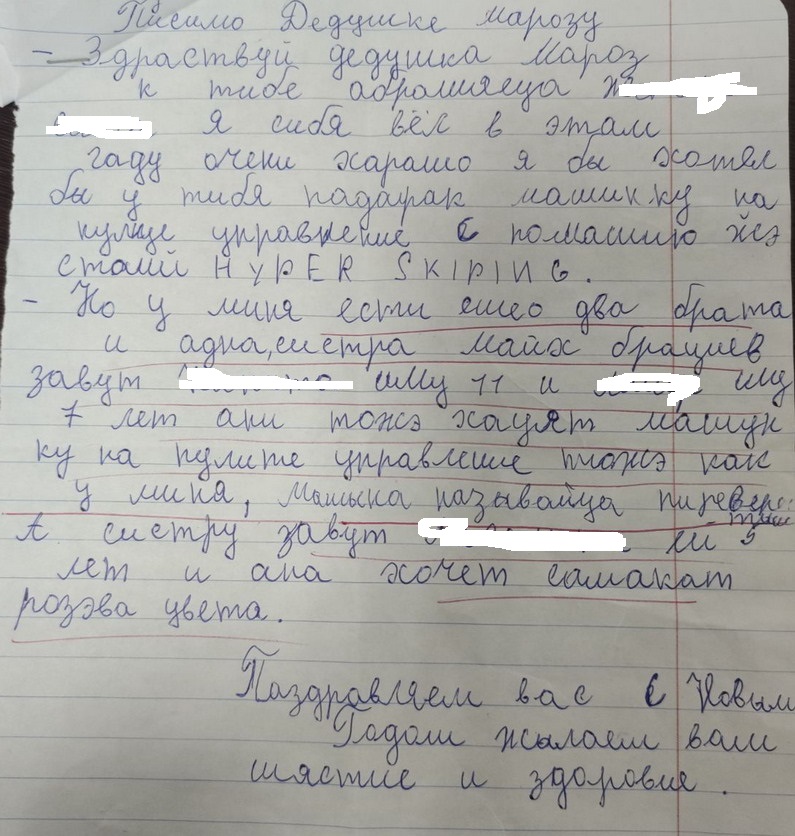 Письмо Дедушке марозу
– Здраствуй дедушка Мароз
к тибе абрашяеца
Я сибя вёл в этам
гаду очени харашо я бы хотял
бы у тибя падарак машинку на
кулце управнение с помашию жэ
сталй HYPER SKIPING.
– Но у миня ести ешео два брата
и адна, систра майх брациев
завут иму 11 и иму
7 лет ани тожэ хацят машун
ку на пулите управление тожэ как
у миня, Машына называйца пиревёр
тыш
А систру завут ей 5
лет и ана хочет самакат
розэва цвета.
Паздравляем вас с Новым
Годом жылаем вам
шястие и здоровие.